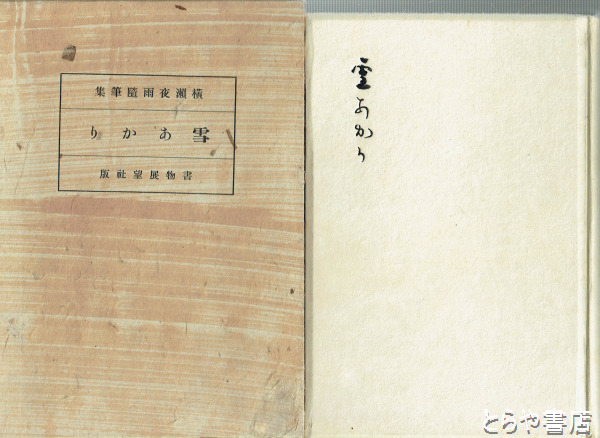 橫瀨夜雨隨筆集
雪あかり
書物展望社版
雪あかり
とらや書店